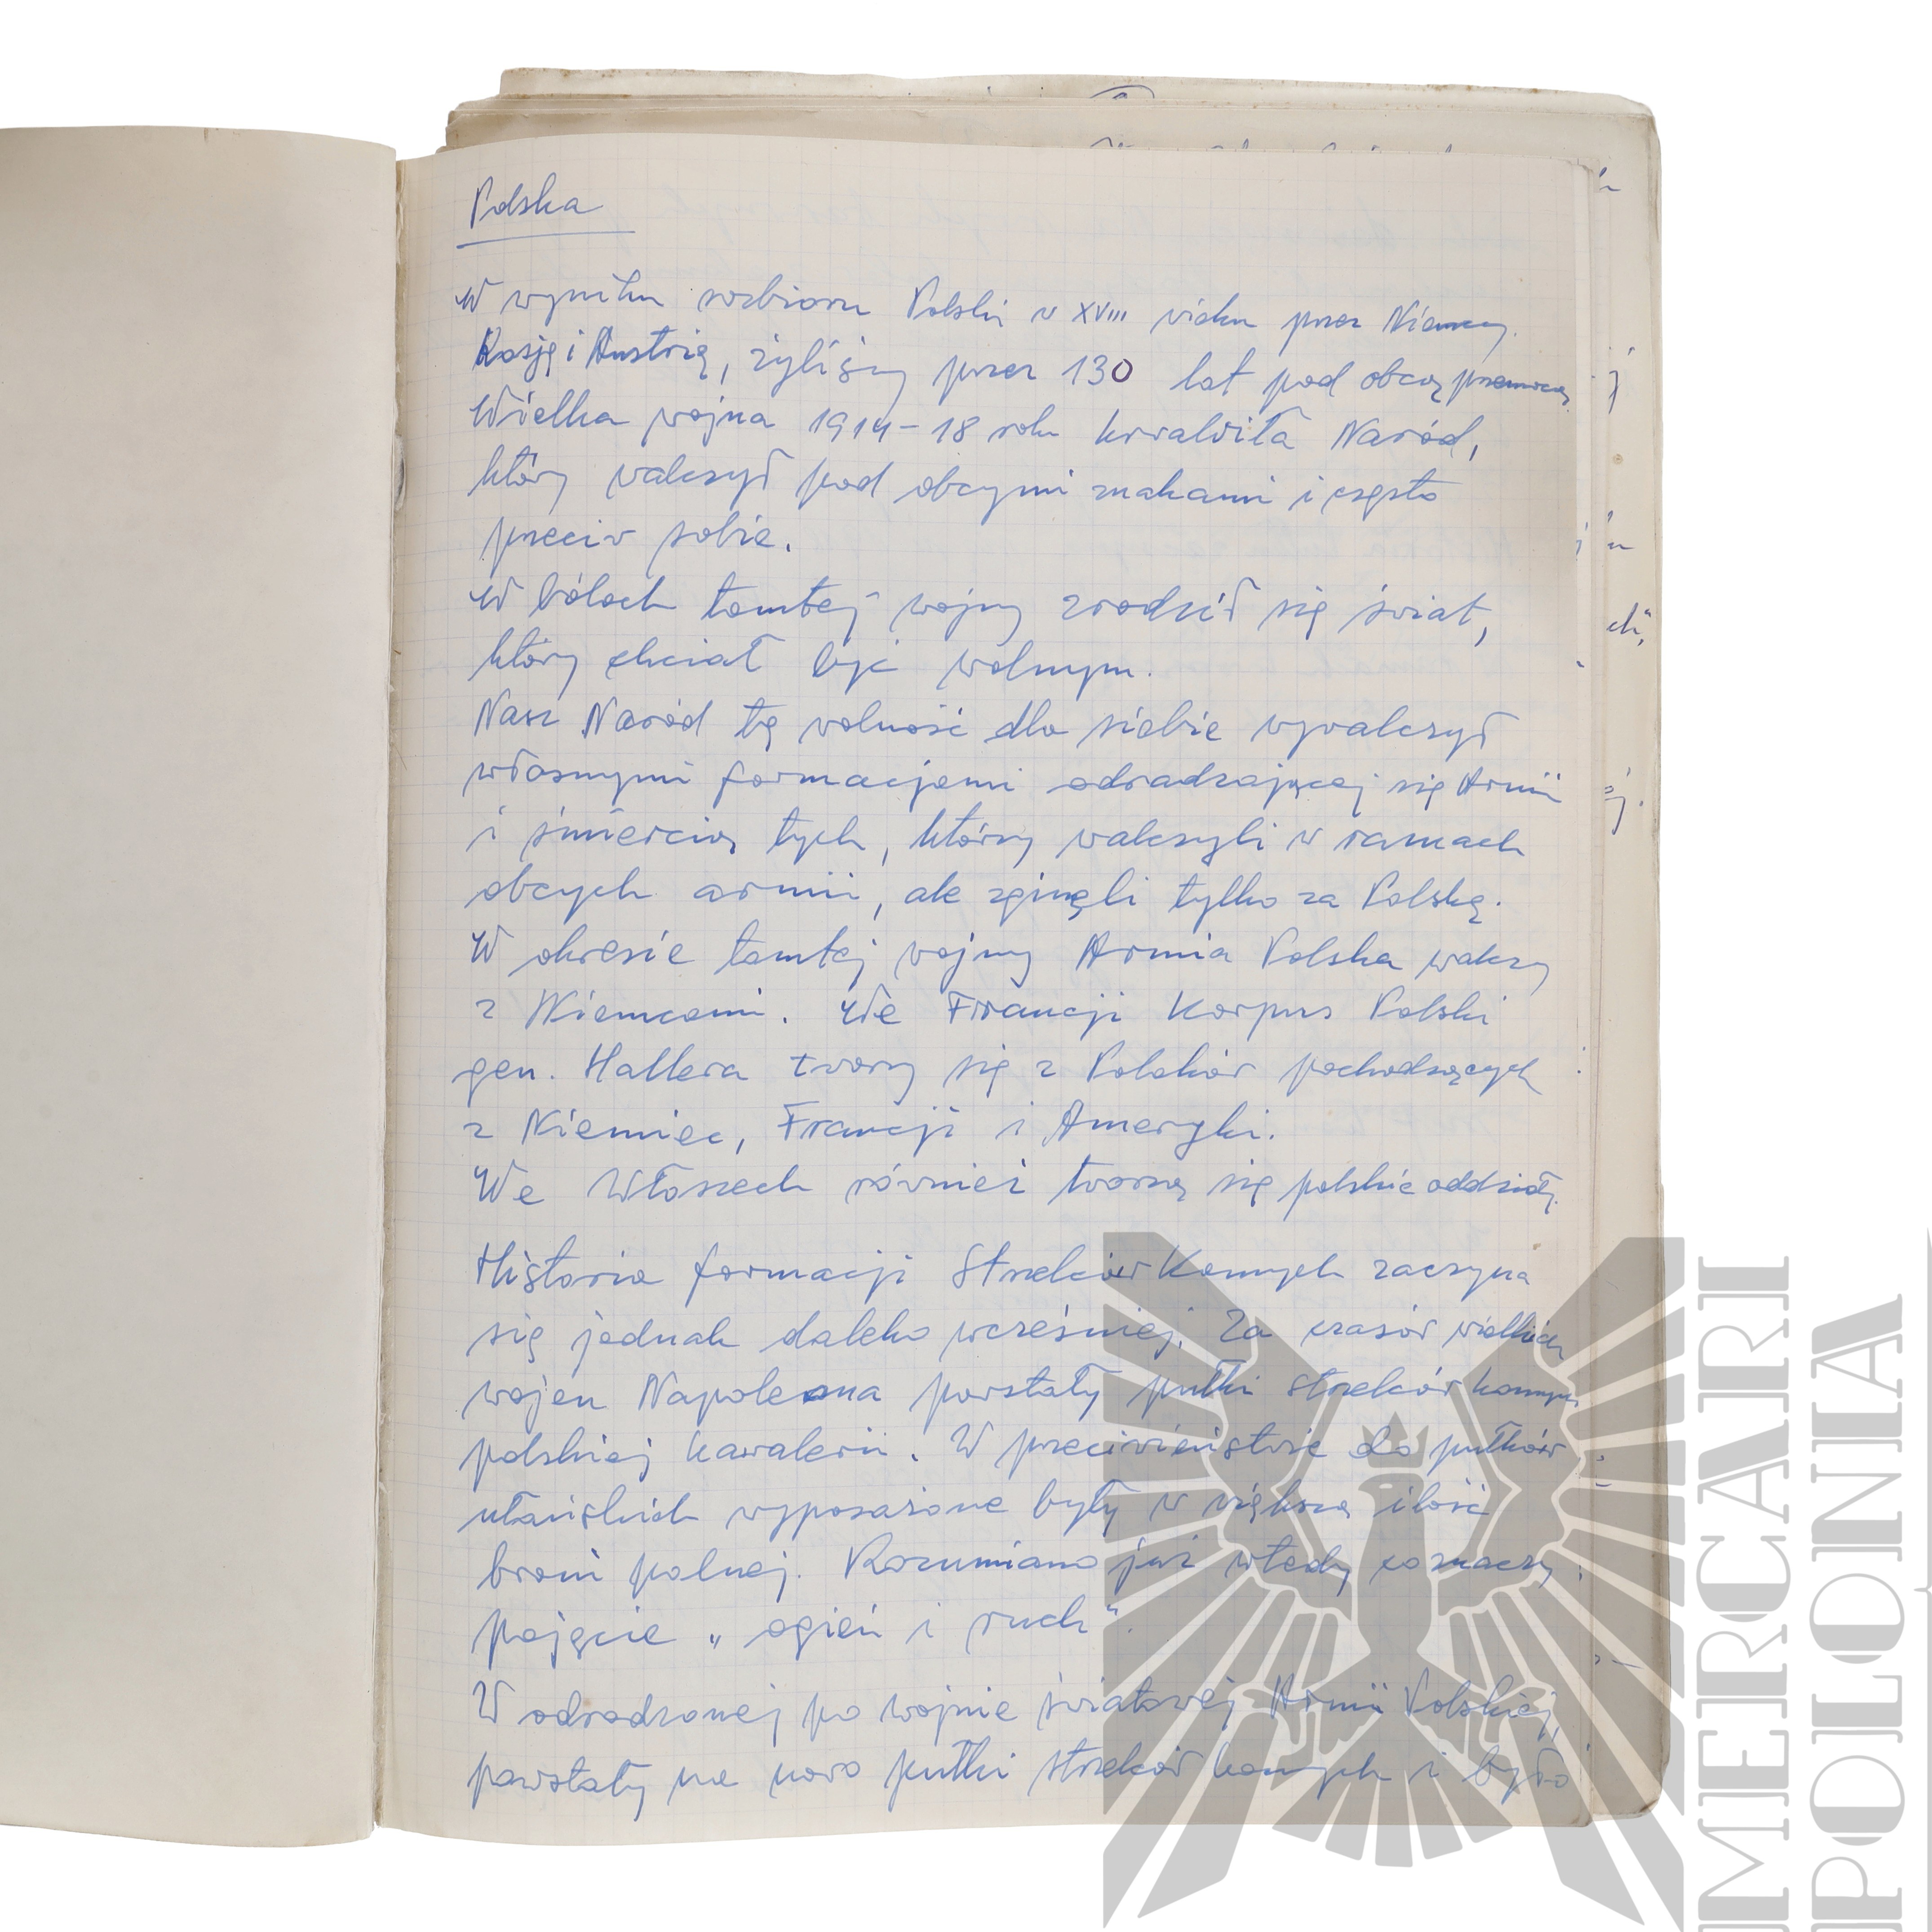 Polska
W wyniku rozbioru Polski w XVIII wieku przez Niemcy,
Rosję i Austrię, żyliśmy przez 130 lat pod obcą przemocą.
Wielka wojna 1914-18 roku krwawiła Naród,
który walczył pod obcymi znakami i często
przeciw sobie.
W bólach tamtej wojny zrodził się świat,
który chciał być wolnym.
Nasz Naród tę wolność dla siebie wywalczył
własnymi formacjami odradzającej się Armii
i śmiercią tych, którzy walczyli w ramach
obcych armii, ale zginęli tylko za Polskę.
W okresie tamtej wojny Armia Polska walczy
z Niemcami. We Francji Korpus Polski
gen. Hallera tworzy się z Polaków pochodzących
z Niemiec, Francji i Ameryki.
We Włoszech również tworzą się polskie oddziały.
Historia formacji Strzelców Konnych zaczyna
się jednak daleko wcześniej. Za czasów wielkich
wojen Napoleona powstały pułki strzelców konnych
polskiej kawalerii. W przeciwieństwie do pułków
ułańskich wyposażone były w większą ilość
broni palnej. Rozumiano już wtedy co znaczy
pojęcie „ogień i ruch".
W odrodzonej po wojnie światowej Armii Polskiej,
powstały na nowo pułki strzelców konnych i było
IMERCARI
POLONIA